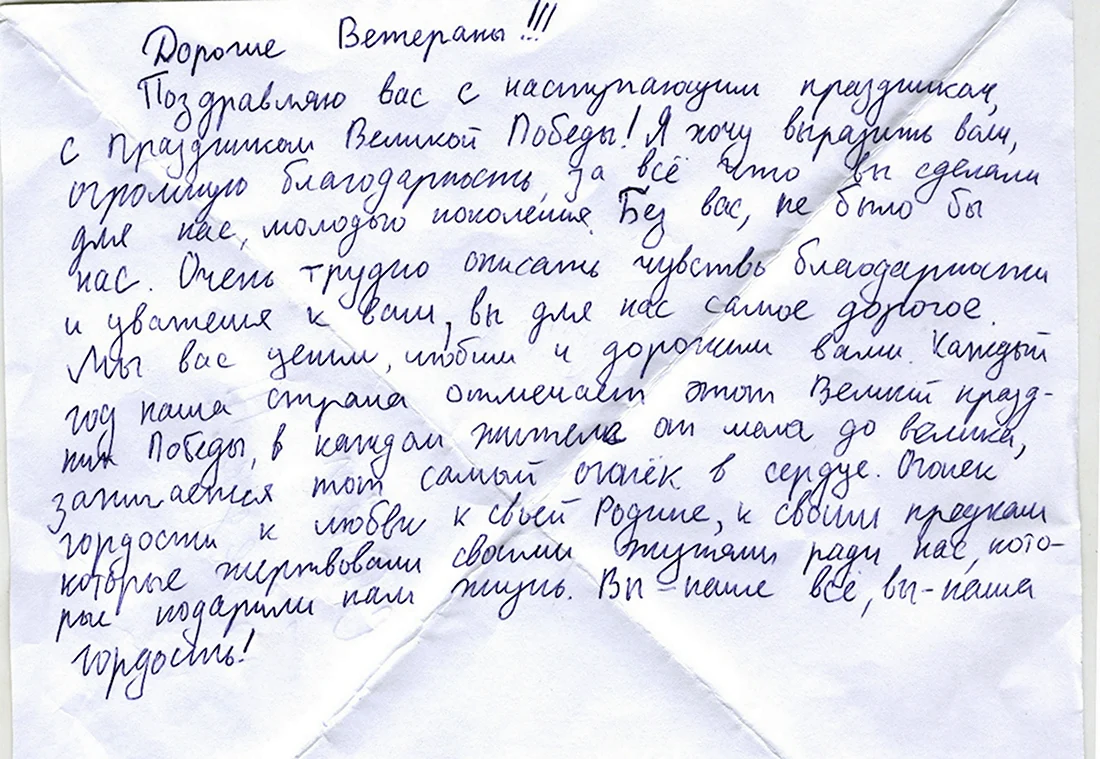 Дорогие Ветераны!!!
Поздравляю вас с наступающим праздником,
с праздником Великой Победы! Я хочу выразить вам,
огромную благодарность, за всё что вы сделали
для нас, молодого поколения. Без вас, не было бы
нас. Очень трудно описать чувство благодарности
и уважения к вам, вы для нас самое дорогое.
Мы вас ценим, любим и дорожим вами. Каждый
год наша страна отмечает этот Великий празд-
ник Победы, в каждом жителе от мала до велика,
зажигается тот самый огонёк в сердце. Огонек
гордости к любви к своей Родине, к своим предкам
которые жертвовали своими жизнями ради нас, кото-
рые подарили нам жизнь. Вы - наше всё, вы - наша
гордость!